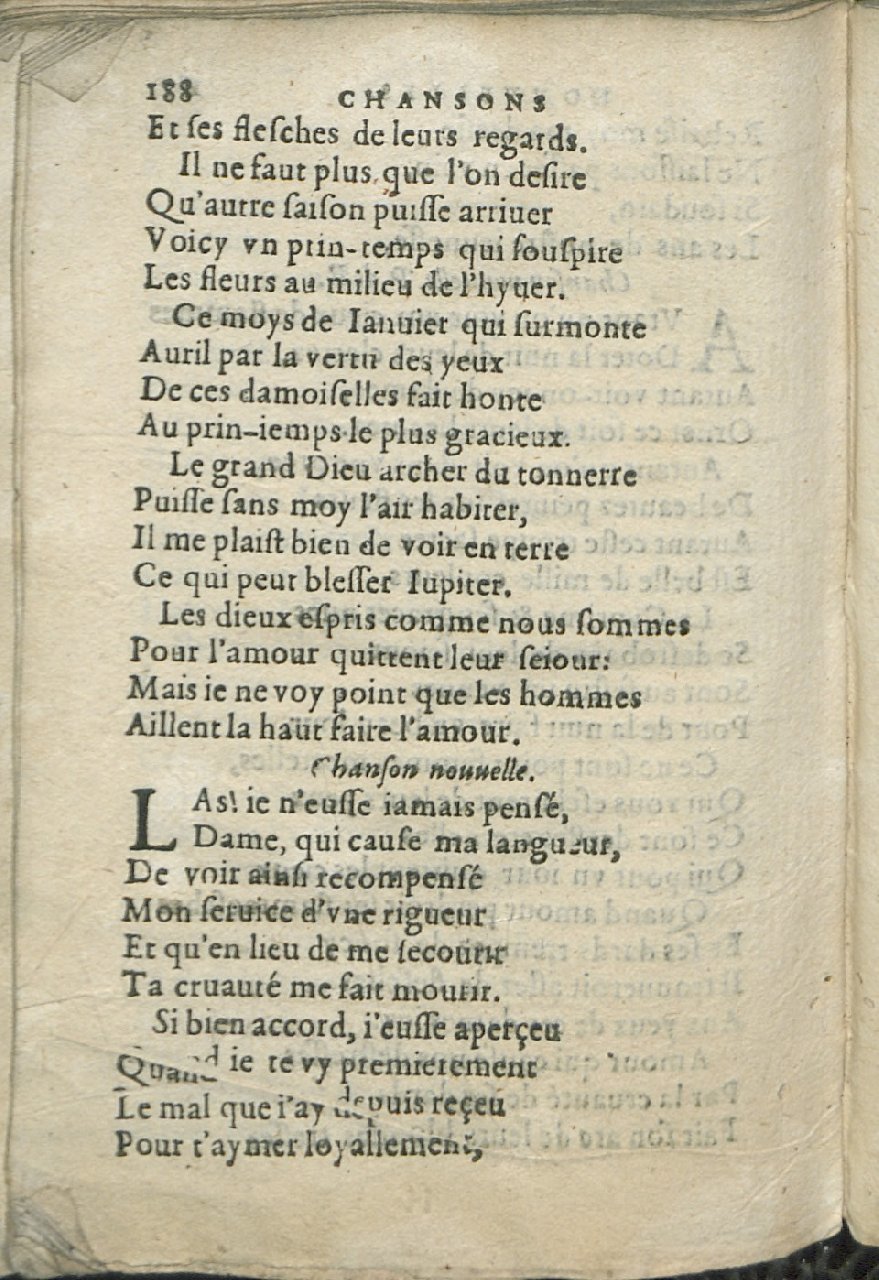 188 CHANSONS
Et ſes fleſches de leurs regards.
Il ne faut plus que l'on deſire
Qu'autre ſaiſon puiſſe arriuer
Voicy vn prin-temps qui ſouſpire
Les fleurs au milieu de l'hyuer.
Ce moys de Ianuier qui ſurmonte
Auril par la vertu des yeux
De ces damoiſelles fait honte
Au prin-temps le plus gracieux.
Le grand Dieu archer du tonnerre
Puiſſe ſans moy l'air habiter,
Il me plaiſt bien de voir en terre
Ce qui peut bleſſer Iupiter.
Les dieux eſpris comme nous ſommes
Pour l'amour quittent leur ſeiour:
Mais ie ne voy point que les hommes
Aillent la haut faire l'amour.
Chanſon nouuelle.
LAs! ie n'euſſe iamais penſé,
Dame, qui cauſe ma langueur,
De voir ainſi recompenſé
Mon ſeruice d'vne rigueur
Et qu'en lieu de me ſecourir
Ta cruauté me fait mourir.
Si bien accord, i'euſſe aperçeu
Quand ie te vy premierement
Le mal que i'ay depuis reçeu
Pour t'aymer loyallement,